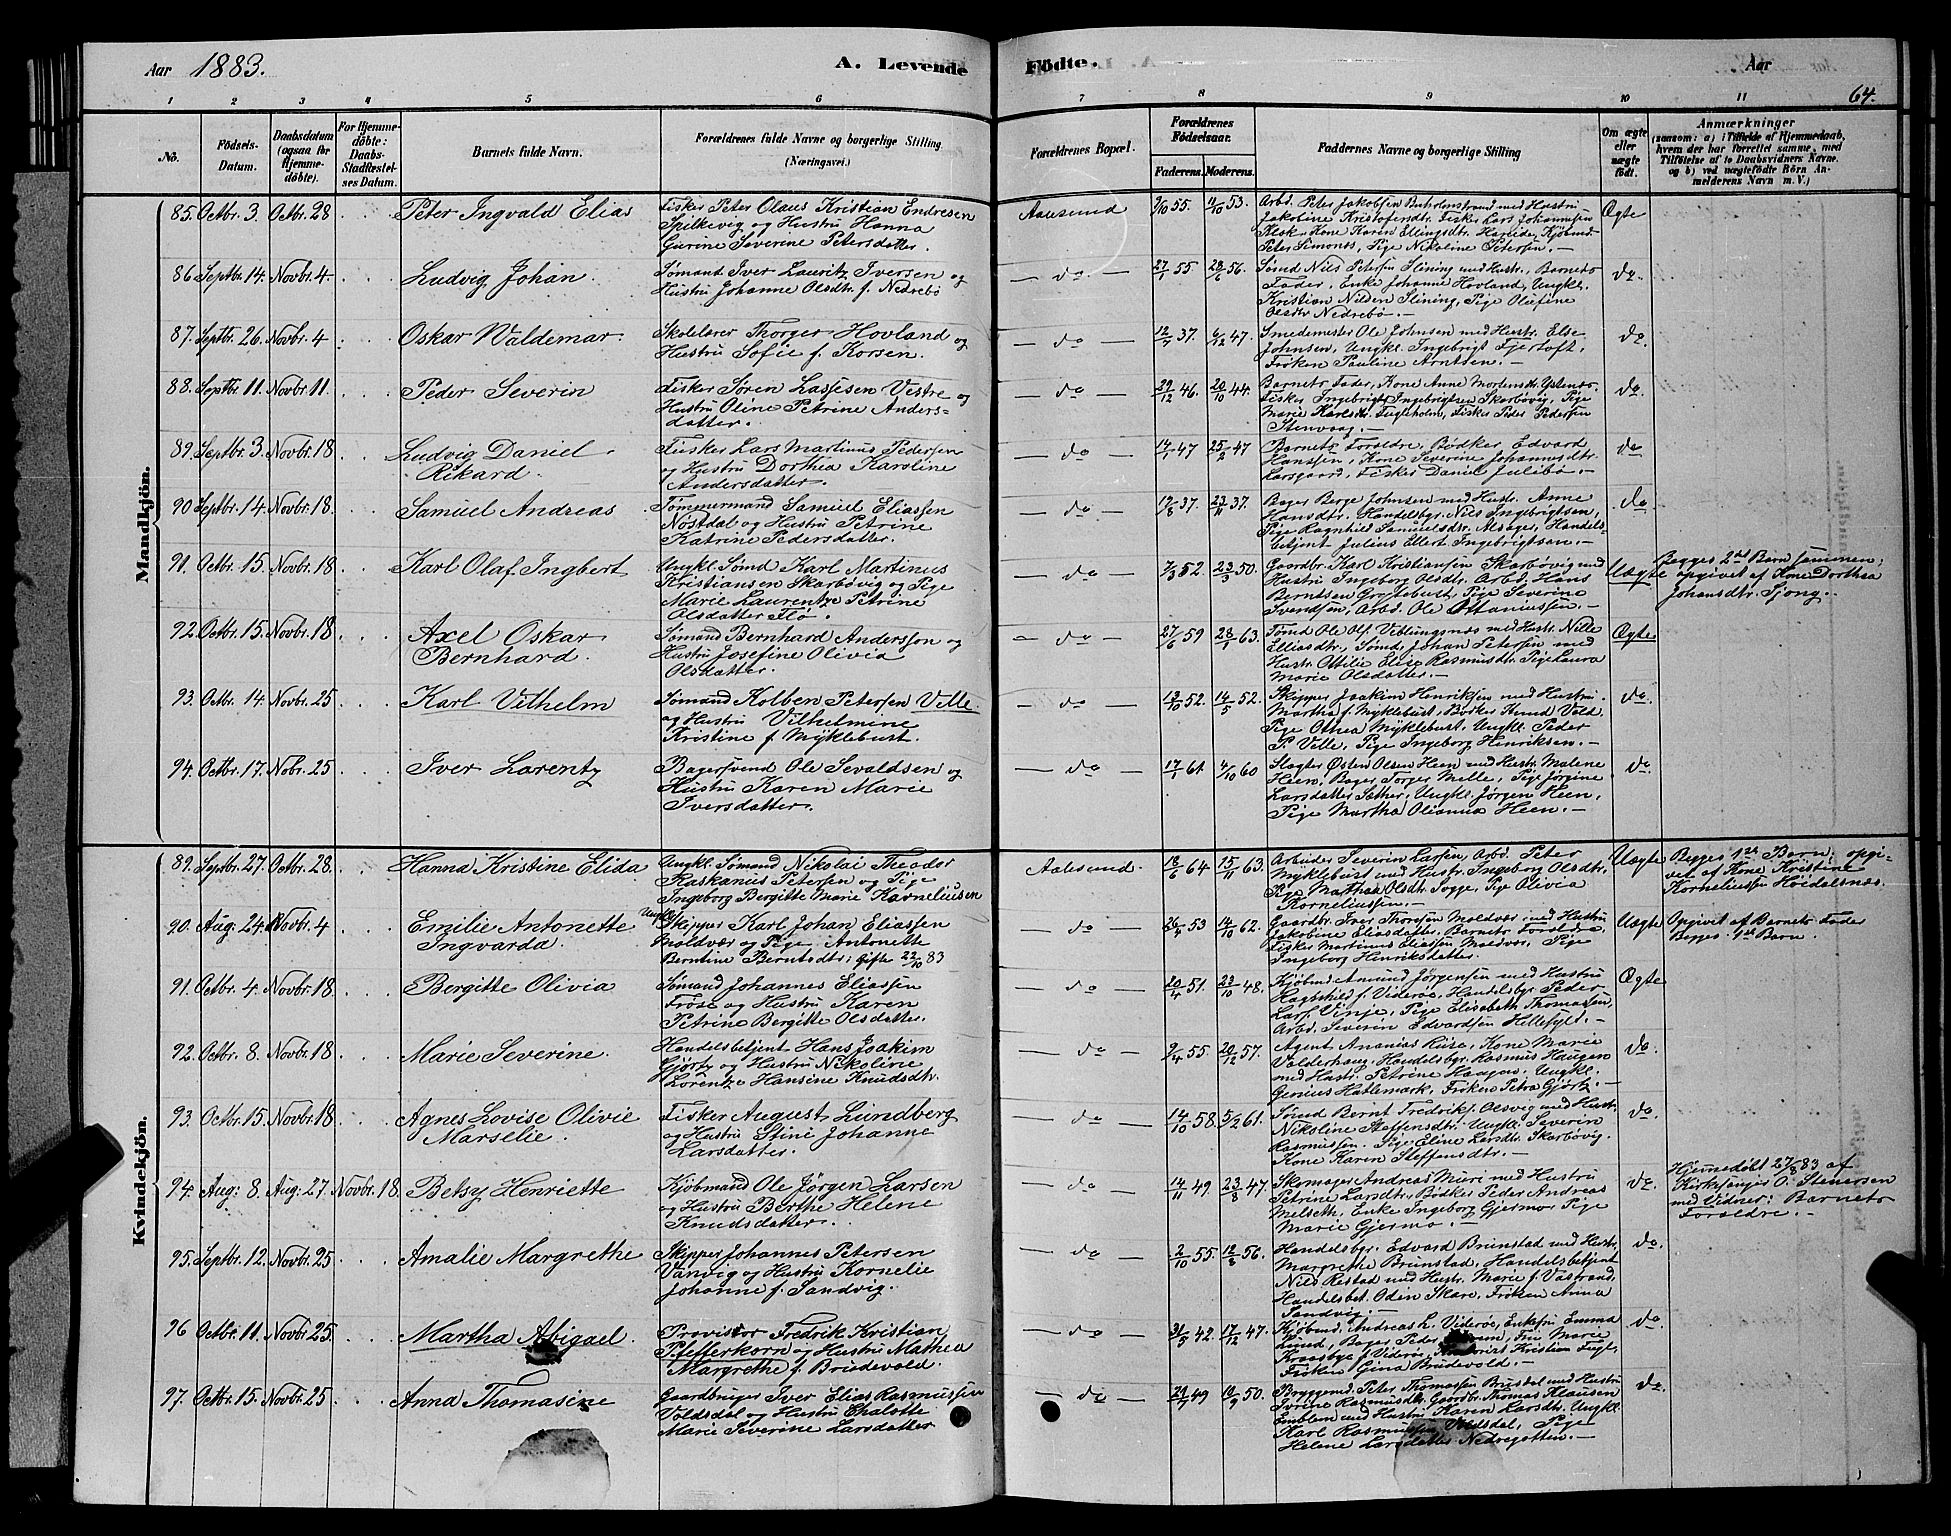 Aar 1883.
A. Levende Födte.
Aar
64.
1 2 3 4 5 6 7 8 9 10 11
No.
Födsels-Datum.
Daabsdatum (ogsaa for Hjemme-döbte).
For Hjemme-döbte: Daabs-Stadfæstel-ses Datum.
Barnets fulde Navn.
Forældrenes fulde Navne og borgerlige Stilling (Næringsvei.)
Forældrenes Bopæl.
Forældrenes Födselsaar.
Faderens. Moderens.
Faddernes Navne og borgerlige Stilling
Om ægte eller uægte födt.
Anmærkninger
(saasom: a) i Tilfælde af Hjemmedaab,
hvem der har forrettet samme, med
Tilföielse af to Daabsvidners Navne.
og b) ved uægtefödte Börn An-
melderens Navn m. V.)
Mandkjön.
85. Octbr. 3. Octbr. 28 Peter Ingvald Elias
Fisker Peter Olaus Kristian Endresen
Spilkevig og Hustru Hanna
Gurine Severine Petersdatter.
Aalesund 9/10 55. 11/10 53.
Arbd. Peter Jakobsen Buholmstrand med Hustru
Jakobine Kristofersdtr. Fisker Lars Johannesen
Peter Simonæs, Pige Nikoline Petersen.
Ægte
86. Septbr. 14. Novbr. 4. Ludvig Johan.
Sömand Iver Lauritz Iversen og
Hustru Johanne Olsdtr. f. Nedrebö
do 27/1 55. 28/6 56.
Sömd Nils Petersen Slining med Hustr., Barnets
Fader, Enke Johanne Hovland, Ungkl.
Kristian Nilsen Slining, Pige Olefine
Olsdtr Nedrebö.
do.
87. Septbr. 26. Novbr. 4 Oskar Valdemar
Skolelærer Thorger Hovland og
Hustru Sofie f. Korsen.
do 12/7 37. 6/12 47.
Smedemester Ole Johnsen med Hustr. Else
Johnsen, Ungkl. Ingebrigt Fjertoft,
Fröken Pauline Arntsen.
do.
88. Septbr. 11. Novbr. 11. Peder Severin
Fisker Sören Lassesen Vestre og
Hustru Oline Petrine Anders-
datter.
do 29/12 46. 20/10 44.
Barnets Fader, Kone Anne Mortensdtr. Ystenæs.
Fisker Ingebrigt Ingebrigtsen Skarbövig, Pige
Marie Karlsdtr. Fugleholm, Fisker Peder Pedersen
Stenvaag.
do
89. Septbr. 3. Novbr. 18 Ludvig Daniel
Rikard.
Fisker Lars Martinus Pedersen
og Hustru Dorthea Karoline
Andersdatter.
do 14/1 47. 25/2 47
Barnets Forældre, Bödker Edvard
Hanssen, Kone Severine Johannesdtr.
Larsgaard, Fisker Daniel Julebö.
do
90 Septbr. 14. Novbr. 18. Samuel Andreas
Tömmermand Samuel Eliassen
Nöstdal og Hustru Petrine
Katrine Pedersdatter.
do 19/8 37. 23/11 37.
Bager Berge Johnsen med Hustr. Anne
Hansdtr. Handelsbgr. Nils Ingebrigtsen,
Pige Ragnhild Samuelsdtr. Alsager, Handels-
betjent Julius Ellert Ingebrigtsen.
do
91. Octbr. 15. Novbr. 18 Karl Olaf Ingbert
Ungkl. Sömd Karl Martinus
Kristiansen Skarbövig og Pige
Marie Laurentze Petrine
Olsdatter Flö.
do 7/3 52. 23/3 50.
Gaardbr. Karl Kristiansen Skarbövig med
Hustru Ingeborg Olsdtr. Arbd. Hans
Berntsen Grytebust, Pige Severine
Svendsen, Arbd. Ole Ottaniussen.
Uægte
Begges 2det Barn sammen;
opgivet af Kone Dorthea
Johansdtr. Tjong.
92. Octbr. 15. Novbr. 18 Axel Oskar
Bernhard.
Sömand Bernhard Anderssen og
Hustru Josefine Olivia
Olsdatter.
do 27/6 59 28/1 63.
Tömd Ole Ols. Veblungsnæs med Hustr. Nille
Elliasdtr., Sömd. Johan Petersen med
Hustr. Ottilie Elise Rasmusdtr. Pige Laura
Marie Olsdatter.
Ægte
93. Octbr. 14. Novbr. 25 Karl Vilhelm
Sömand Kolben Petersen Ville
og Hustru Vilhelmine
Kristine f. Myklebust.
do 13/10 52. 14/5 52.
Skipper Joakim Henriksen med Hustru
Martha f. Myklebust, Bödker Knud Vold.
Pige Othea Myklebust, Ungkl. Peder
P. Ville, Pige Ingeborg Henriksen.
do.
94. Octbr. 17. Nobr. 25 Iver Larentz
Bagersvend Ole Sevaldsen og
Hustru Karen Marie
Iversdatter.
do 17/1 61 4/10 60
Slagter Östen Olsen Heen med Hustr. Malene
Heen, Bager Torger Melle, Pige Jörgine
Larsdatter Sæther, Ungkl. Jörgen Heen,
Pige Martha Olianna Heen.
do.
Kvindekjön.
89. Septbr. 27. Octbr. 28. Hanna Kristine Elida
Ungkl. Sömand Nikolai Theodor
Raskanus Petersen og Pige
Ingeborg Bergitte Marie Korneliusen
Aalesund. 18/6 64 15/11 63.
Arbeider Severin Larsen, Arbd. Peter
Myklebust med Hustr. Ingeborg Olsdtr.
Pige Marthaa Olsdtr. Sogge, Pige Olivia
Korneliussen.
Uægte
Begges 1ste Barn; opgi-
vet af Kone Kristine
Korneliussen Höidalsnæs.
90. Aug: 24. Novbr. 4 Emilie Antonette
Ingvarda.
Ungkl. Skipper Karl Johan Eliassen
Moldvær og Pige Antonette
Berntine Berntsdtr; Gifte 22/10 83
do 26/4 53 14/10 62.
Gaardbr. Iver Thoresen Moldvær med Hustru
Jakobine Eliasdatter. Barnets Forældre,
Fisker Martinus Eliassen Moldvær, Pige
Ingeborg Henriksdatter.
Uægte
Opgivet af Barnets Fader
Begges 1ste Barn.
91. Octbr. 4. Novbr. 18. Bergitte Olivia
Sömand Johannes Eliassen
Fröse og Hustru Karen
Petrine Bergitte Olsdatter.
do 20/4 51. 23/10 48.
Kjöbmd Amund Jörgensen med Hustru
Hagbehild f. Videröe, Handelsbgr. Peder
Lars. Vinje, Pige Elisabeth Thomassen,
Arbd. Severin Edvardsen Hellesylt.
Ægte
92. Octbr. 8. Novbr. 18. Marie Severine.
Handelsbetjent Hans Joakim
Gjörtz og Hustru Nikoline
Lorentze Hansine Knudsdtr.
do 9/4 55. 20/12 57.
Agent Ananias Ruse, Kone Marie
Valderhaug, Handelsbgr. Rasmus Haugen
med Hustr. Petrine Haagen. Ungkl.
Genius Hatlemark, Fröken Petra Gjörtz.
do.
93. Octbr. 15. Novbr. 18 Agnes Lovise Olivie
Marselie.
Fisker August Lundberg
og Hustru Stine Johanne
Larsdatter.
do 14/10 58. 5/2 61.
Sömd Bernt Fredriks. Alsvig med Hustr.
Nikoline Steffensdtr. Ungkl. Severin
Rasmussen. Pige Eline Larsdtr. Skarbövig.
Kone Karen Steffensdtr.
do.
94. Aug: 8. Aug: 27. Novbr. 18. Betsy Henriette
Kjöbmand Ole Jörgen Larsen
og Hustru Berthe Helene
Knudsdatter.
do 14/11 49. 23/8 47
Skomager Andreas Muri med Hustru
Petrine Larsdtr., Bödker Peder Andreas
Melseth, Enke Ingeborg Gjermo, Pige
Marie Gjermo.
do.
Hjemmedöbt 27/8 83 af
Kirkesanger O. Stenersen
med Vidner: Barnets
Forældre.
95. Septbr. 12. Novbr. 25 Amalie Margrethe
Skipper Johannes Petersen
Vanvig og Hustru Kornelie
Johanne f. Sandvig.
do 2/10 55. 12/8 56.
Handelsbgr. Edvard Brunstad med Hustr.
Margrethe Brunstad, Handelsbetjent
Nils Restad med Hustr. Marie f. Vastrand,
Handelsbet. Oden Skare, Fröken Anna
Sandvig.
do.
96 Octbr. 11. Novbr. 25. Martha Abigael.
Provistor Fredrik Kristian
Pfefferkorn og Hustru Mathea
Margrethe f. Brudevold.
do 31/3 42. 17/12 47.
Kjöbmd. Andreas L. Videröe, Enkefru Emma
Lund, Bager Peder
Kraasbye f. Videröe, Kristian Fugl,
Fröken Gina Brudevold.
do.
97. Octbr. 15. Novbr. 25 Anna Thomasine
Gaardbruger Iver Elias Rasmussen
Voldsdal og Hustru Chalotte
Marie Severine Larsdatter
do 21/7 49 10/9 50.
Bryggemd. Peter Thomassen Brusdal med Hustru
Ivrine Rasmusdtr. Gaardbr. Thomas Klausen
Emblem med Hustru Karen Larsdtr. Ungkl.
Karl Rasmussen Voldsdal, Pige
Helene Larsdatter Nedregotten.
do.